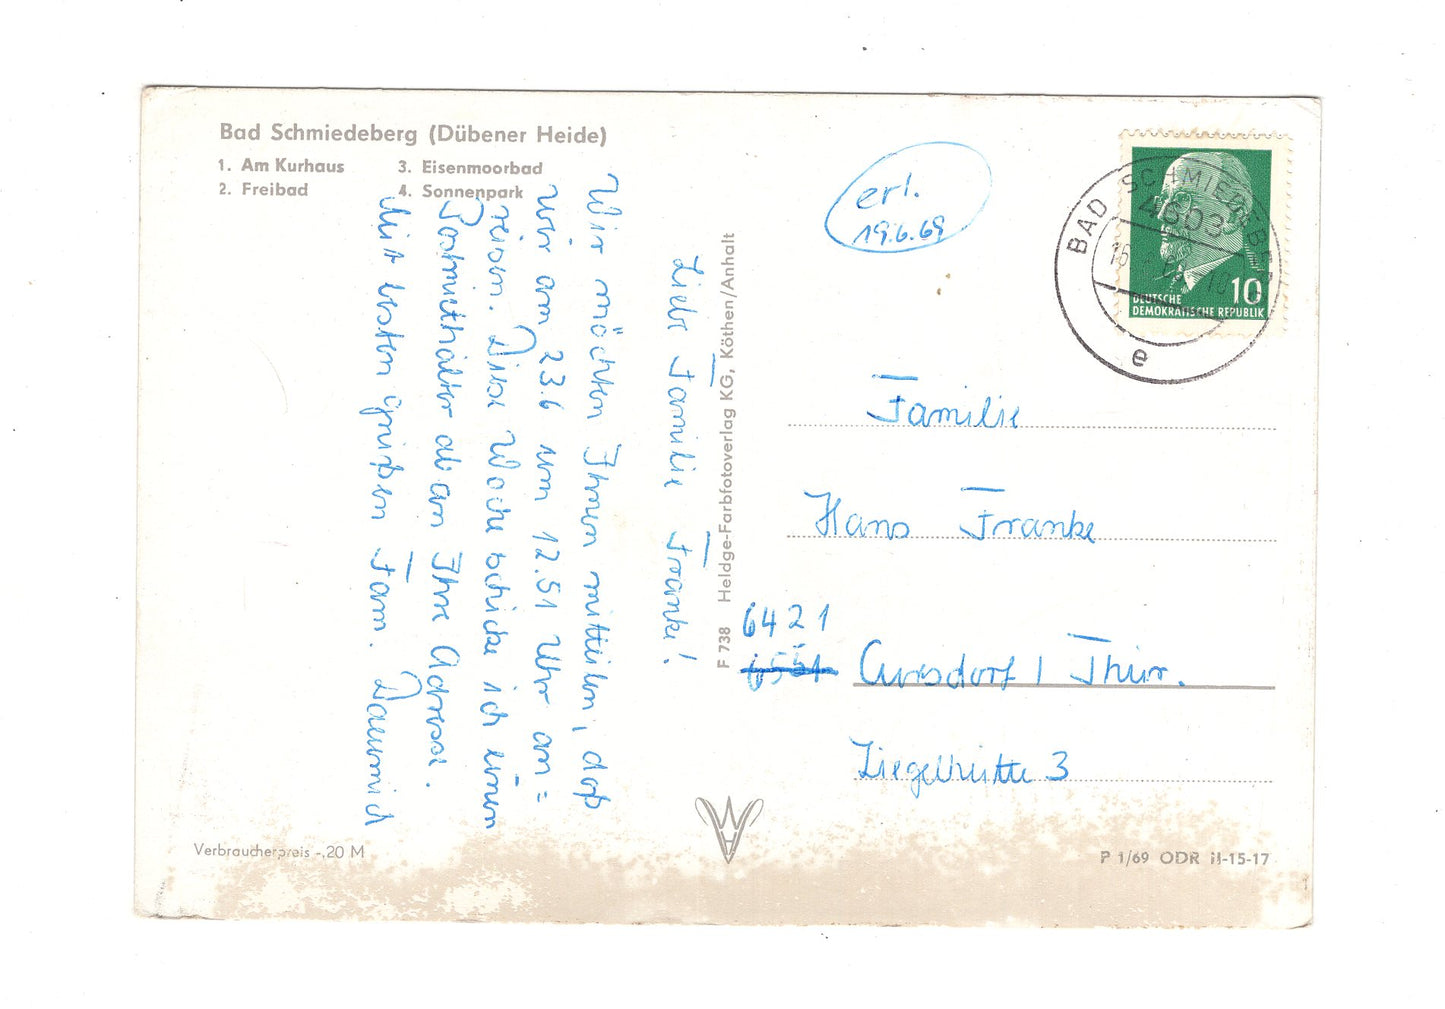 Bad Schmiedeberg (Dübener Heide)
1. Am Kurhaus
2. Freibad
3. Eisenmoorbad
4. Sonnenpark
Liebe Familie Franke!
Wir möchten Ihnen mitteilen, daß
wir am 23.6 um 12.51 Uhr an=
reisen. Diese Woche schicke ich einen
Postmiethälter ab an Ihre Adresse.
Mit besten Grüßen Fam. Daumich
F 738 Heldge-Farbfotoverlag KG, Köthen/Anhalt
erl.
19.6.69
BAD SCHMIEDEBERG
4603
e
10
DEUTSCHE
DEMOKRATISCHE REPUBLIK
Familie
Hans Franke
6421
6551
Cursdorf / Thür.
Ziegelhütte 3
Verbraucherpreis -,20 M
P 1/69 ODR II-15-17